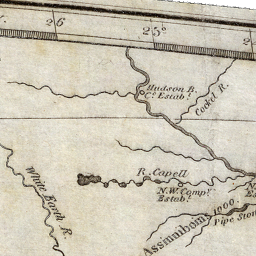 26
25°
2
Hudson R.
C.º Estab.ᵗ
Cockd R.
R. Capell
N.W. Comp.ʸ
Estab.ᵗ
N
Es
White Earth R.
Assiniboin
1000.
Pipe Ston